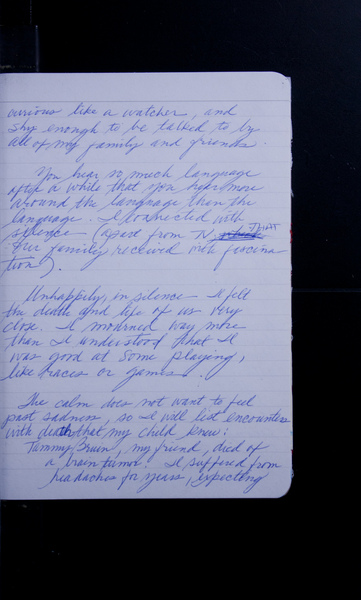 curious like a watcher, and
shy enough to be talked to by
all of my family and friends.
You hear so much language
after a while that you hear more
around the language than the
language. I connected with
silence (apart from TV, THAT
our family received with fascina
tion!).
Unhappily, in silence I felt
the death and life of us very
close. I mourned way more
than I understood that I
was good at some playing,
like races or games.
The calm does not want to feel
past sadness, so I will list encounters
with death that my child knew:
Tammy Bruen, my friend, died of
a brain tumor. I suffered from
headaches for years, expecting